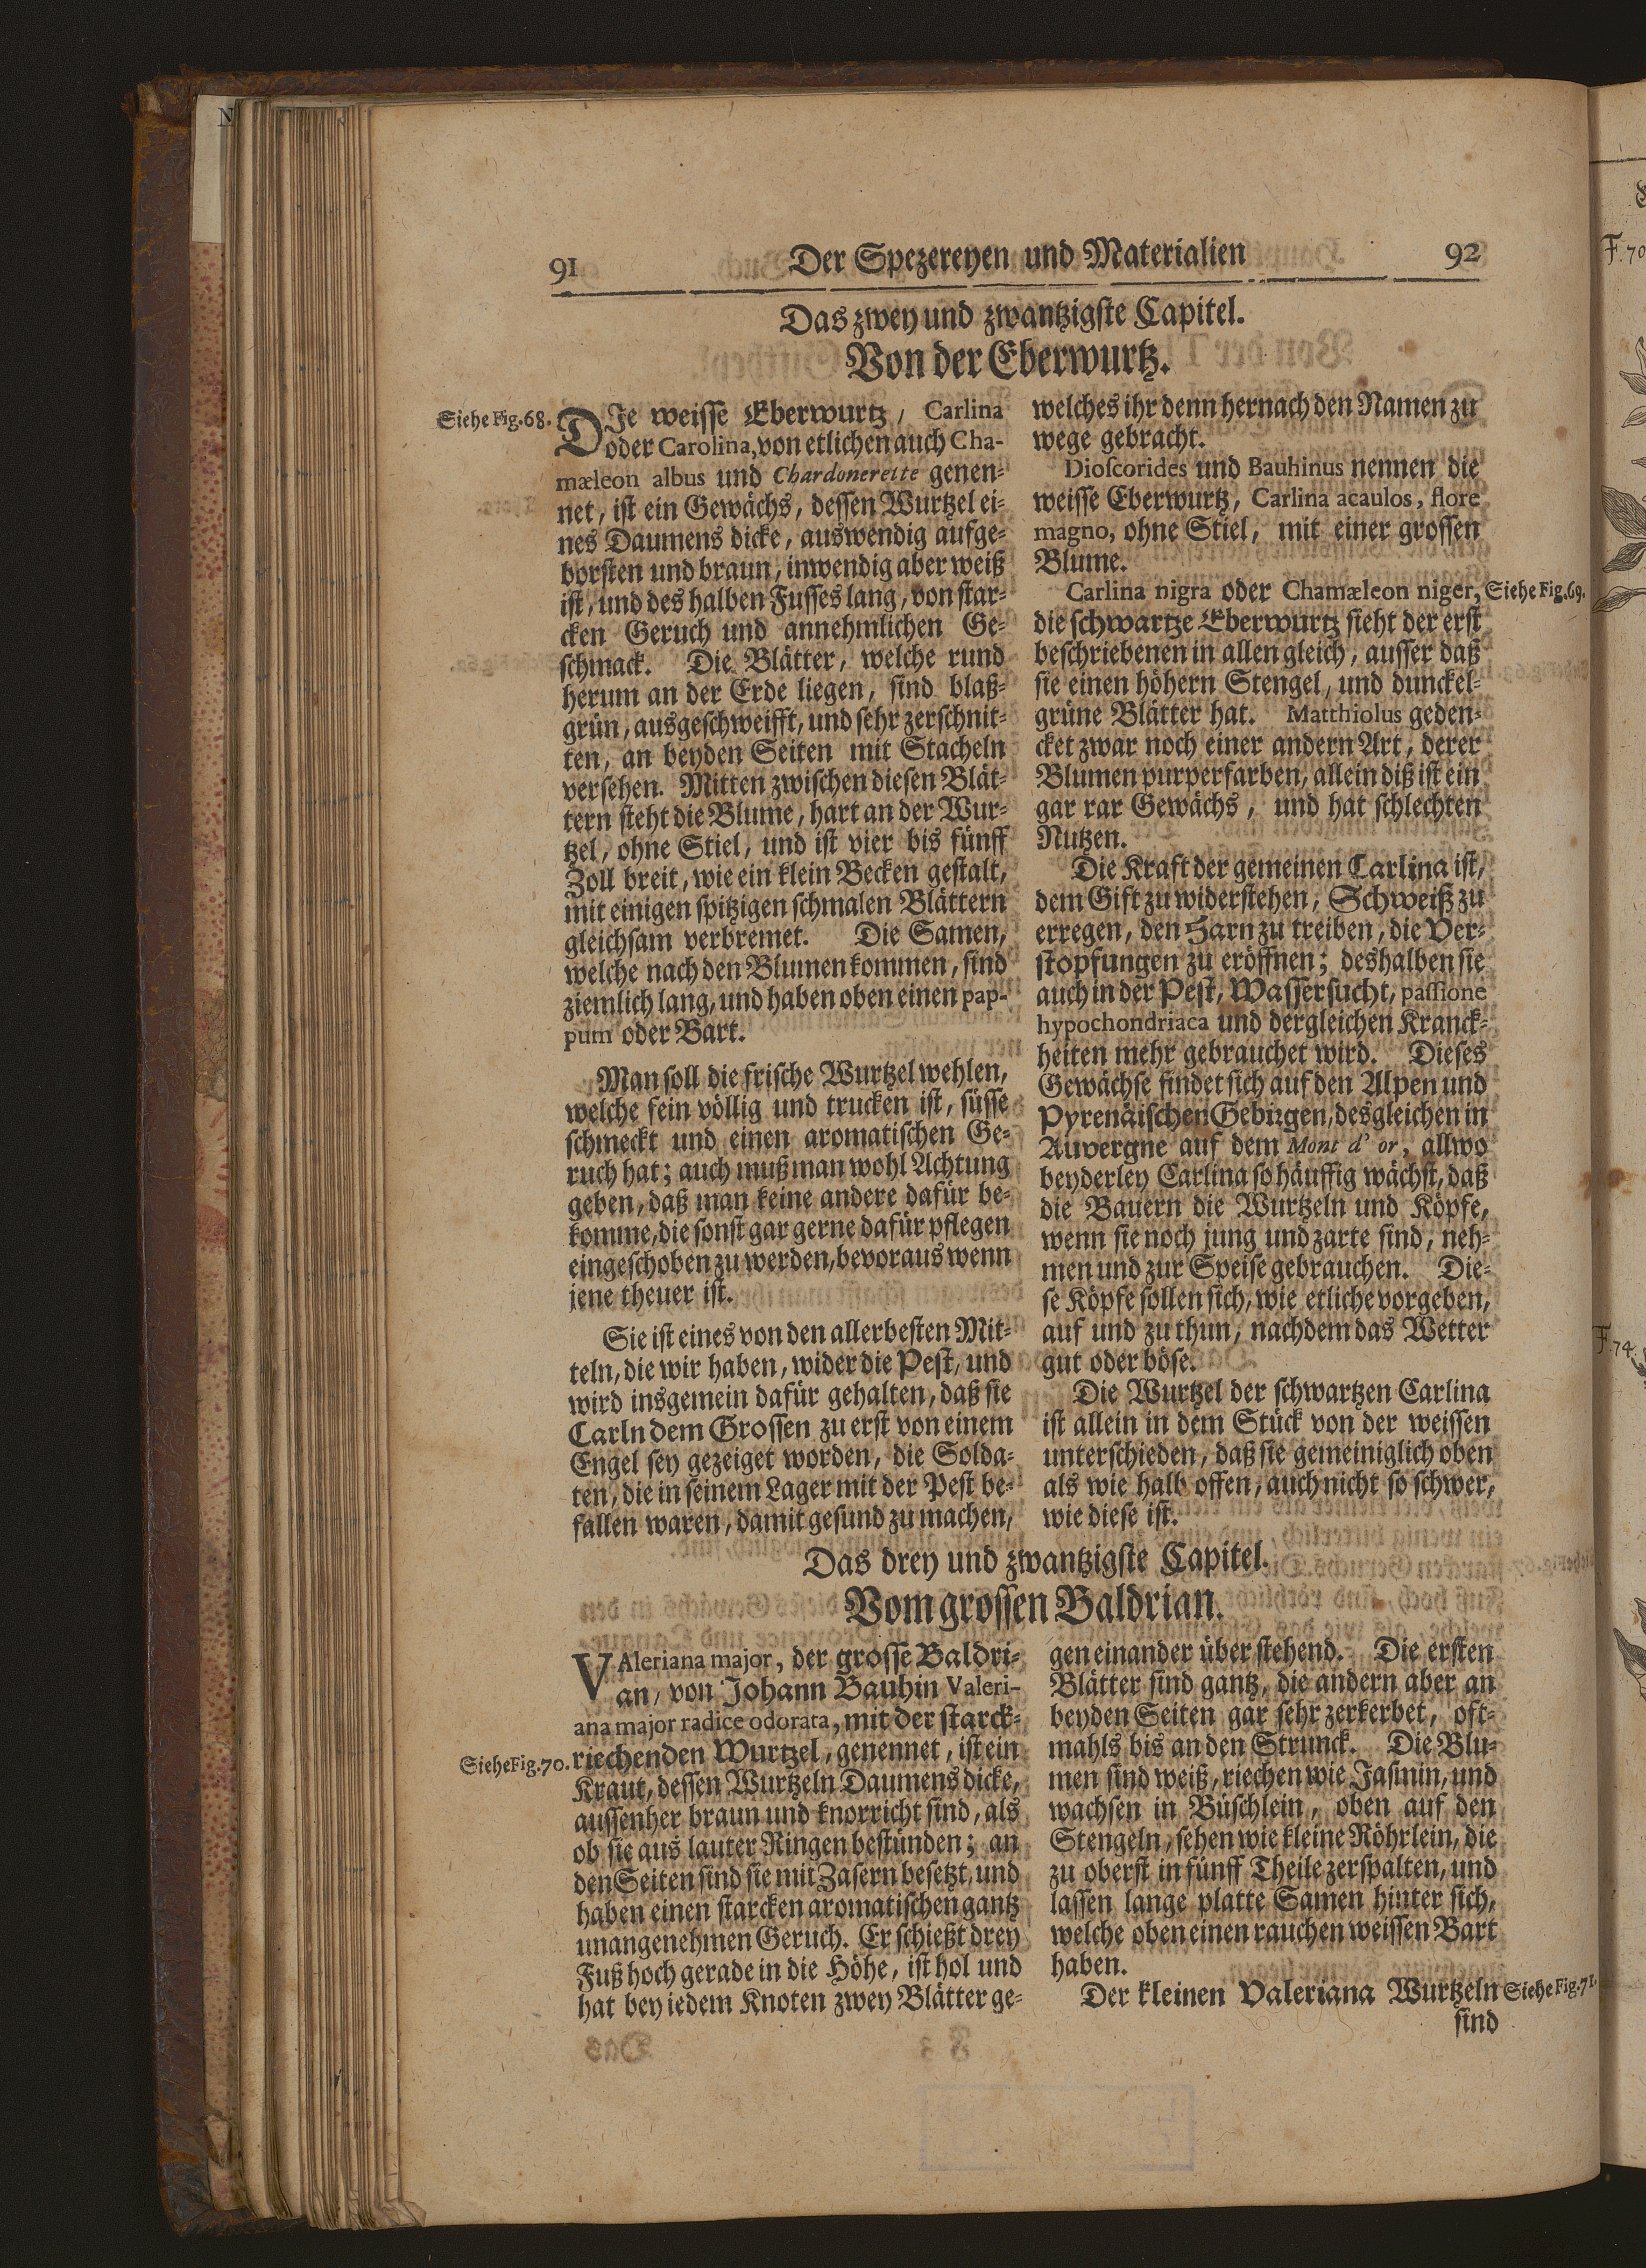 91
Der Spezereyen und Materialien
92
Das zwey und zwantzigste Capitel.
Von der Eberwurtz.
Siehe Fig. 68.
DIe weisse Eberwurtz, Carlina
oder Carolina, von etlichen auch Cha-
mæleon albus und Chardonerette genen-
net, ist ein Gewächs, dessen Wurtzel ei-
nes Daumens dicke, auswendig aufge-
borsten und braun, inwendig aber weiß
ist, und des halben Fusses lang, von star-
cken Geruch und annehmlichen Ge-
schmack. Die Blätter, welche rund
herum an der Erde liegen, sind blaß-
grün, ausgeschweifft, und sehr zerschnit-
ten, an beyden Seiten mit Stacheln
versehen. Mitten zwischen diesen Blät-
tern steht die Blume, hart an der Wur-
tzel, ohne Stiel, und ist vier bis fünff
Zoll breit, wie ein klein Becken gestalt,
mit einigen spitzigen schmalen Blättern
gleichsam verbremet. Die Samen,
welche nach den Blumen kommen, sind
ziemlich lang, und haben oben einen pap-
pum oder Bart.
Man soll die frische Wurtzel wehlen,
welche fein völlig und trucken ist, süsse
schmeckt und einen aromatischen Ge-
ruch hat; auch muß man wohl Achtung
geben, daß man keine andere dafür be-
komme, die sonst gar gerne dafür pflegen
eingeschoben zu werden, bevoraus wenn
jene theuer ist.
Sie ist eines von den allerbesten Mit-
teln, die wir haben, wider die Pest, und
wird insgemein dafür gehalten, daß sie
Carln dem Grossen zu erst von einem
Engel sey gezeiget worden, die Solda-
ten, die in seinem Lager mit der Pest be-
fallen waren, damit gesund zu machen,
welches ihr denn hernach den Namen zu
wege gebracht.
Dioscorides und Bauhinus nennen die
weisse Eberwurtz, Carlina acaulos, flore
magno, ohne Stiel, mit einer grossen
Blume.
Carlina nigra oder Chamæleon niger,
Siehe Fig. 69.
die schwartze Eberwurtz sieht der erst
beschriebenen in allen gleich, ausser daß
sie einen höhern Stengel, und dunckel-
grüne Blätter hat. Matthiolus geden-
cket zwar noch einer andern Art, derer
Blumen purperfarben, allein diß ist ein
gar rar Gewächs, und hat schlechten
Nutzen.
Die Kraft der gemeinen Carlina ist,
dem Gift zu widerstehen, Schweiß zu
erregen, den Harn zu treiben, die Ver-
stopfungen zu eröffnen; deshalben sie
auch in der Pest, Wassersucht, passione
hypochondriaca und dergleichen Kranck-
heiten mehr gebrauchet wird. Dieses
Gewächse findet sich auf den Alpen und
Pyrenäischen Gebirgen, desgleichen in
Auvergne auf dem Mont d' or, allwo
beyderley Carlina so häuffig wächst, daß
die Bauern die Wurtzeln und Köpfe,
wenn sie noch jung und zarte sind, neh-
men und zur Speise gebrauchen. Die-
se Köpfe sollen sich, wie etliche vorgeben,
auf und zu thun, nachdem das Wetter
gut oder böse.
Die Wurtzel der schwartzen Carlina
ist allein in dem Stück von der weissen
unterschieden, daß sie gemeiniglich oben
als wie halb offen, auch nicht so schwer,
wie diese ist.
Das drey und zwantzigste Capitel.
Vom grossen Baldrian.
VAleriana major, der grosse Baldri-
an, von Johann Bauhin Valeri-
ana major radice odorata, mit der starck-
Siehe Fig. 70.
riechenden Wurtzel, genennet, ist ein
Kraut, dessen Wurtzeln Daumens dicke,
aussenher braun und knorricht sind, als
ob sie aus lauter Ringen bestünden; an
den Seiten sind sie mit Zasern besetzt, und
haben einen starcken aromatischen gantz
unangenehmen Geruch. Er schießt drey
Fuß hoch gerade in die Höhe, ist hol und
hat bey iedem Knoten zwey Blätter ge-
gen einander über stehend. Die ersten
Blätter sind gantz, die andern aber an
beyden Seiten gar sehr zerkerbet, oft-
mahls bis an den Strunck. Die Blu-
men sind weiß, riechen wie Jasmin, und
wachsen in Büschlein, oben auf den
Stengeln, sehen wie kleine Röhrlein, die
zu oberst in fünff Theile zerspalten, und
lassen lange platte Samen hinter sich,
welche oben einen rauchen weissen Bart
haben.
Der kleinen Valeriana Wurtzeln
Siehe Fig. 71.
sind
F. 70
F. 74